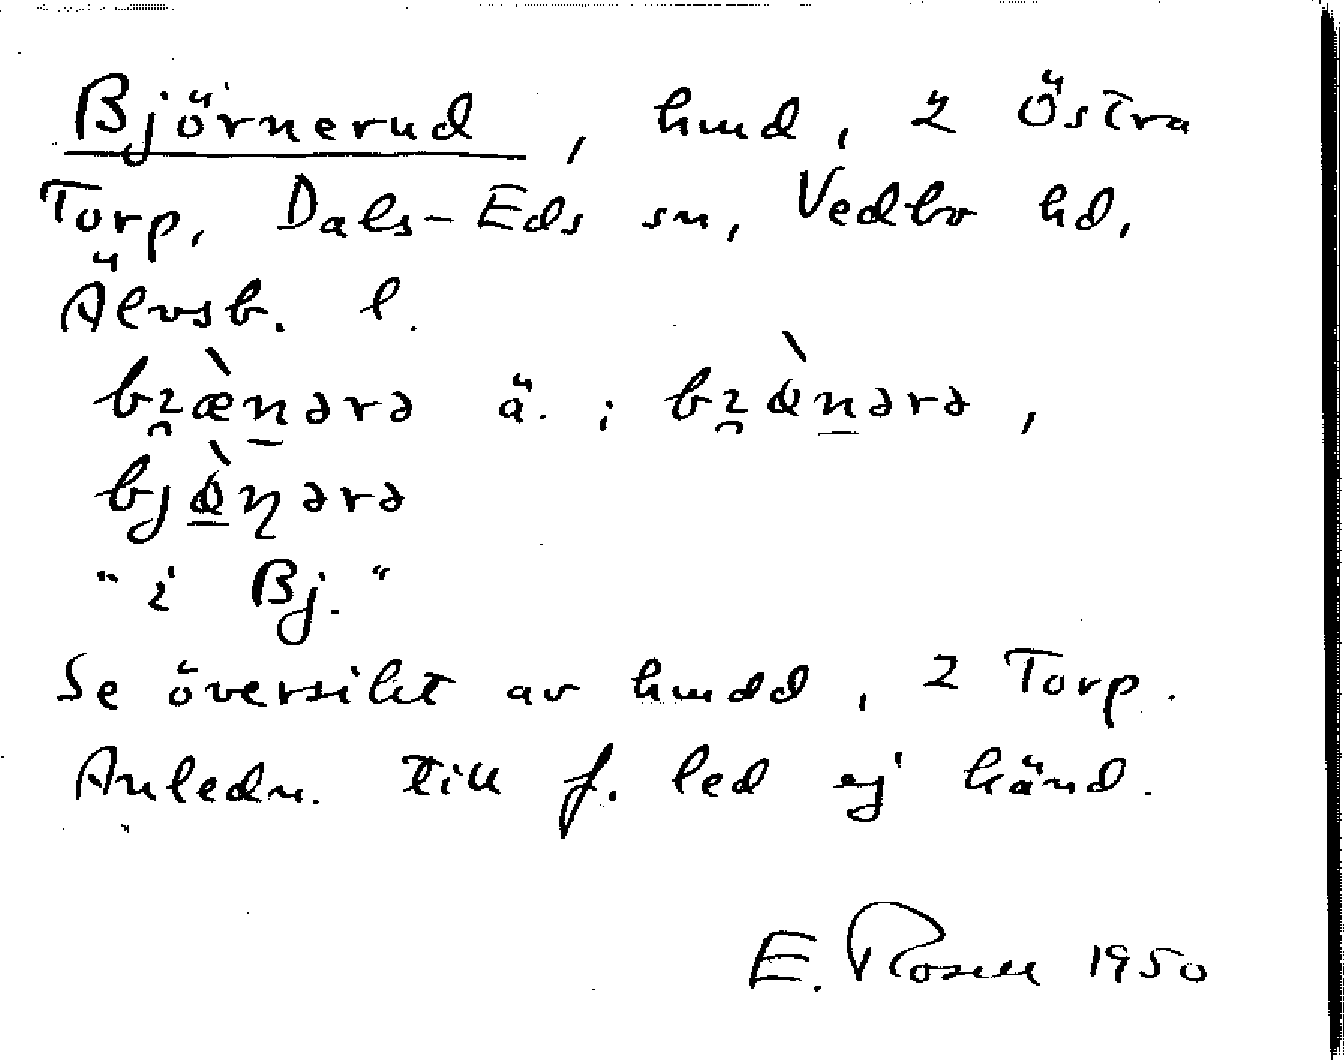 Björnerud, hmd, 2 Östra
Torp, Dals-Eds sn, Vedbo hd,
Älvsb. l.
ä. ;
"i Bj."
Se översikt av hmdd, 2 Torp.
Anledn. till f. led ej känd.
E. Rosell 1950